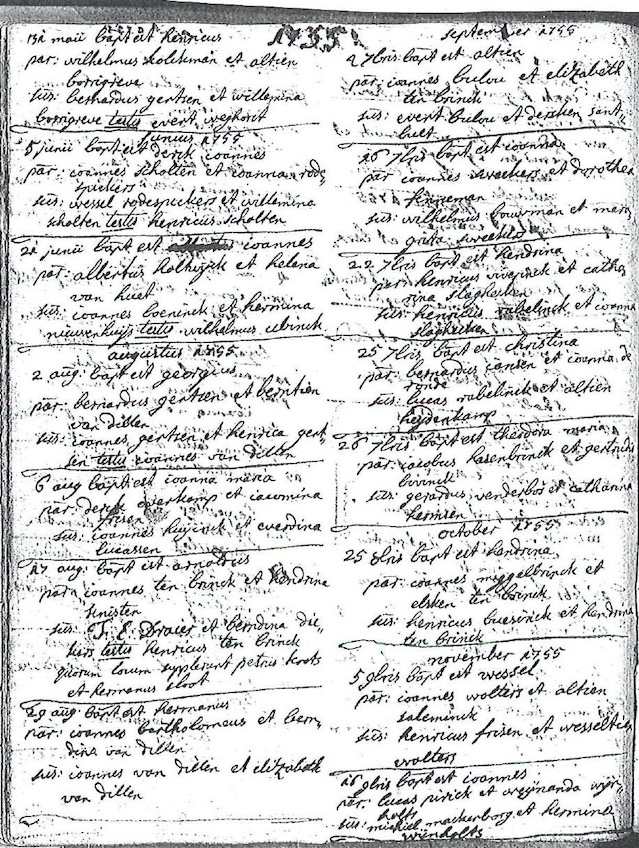 1755
13a maii bapt est henricus
par: wilhelmus kolckman et altien
borrigreve
sus: berhardus gertzen et willemina
borrigreve testis evert weghorst
junius 1755
5 junii bapt est derck ioannes
par: ioannes scholten et ioanna rode„
spickers
sus: wessel rodespickers et willemina
scholten testis henricus scholten
22 junii bapt est ioannes
par: albertus holhuyck et helena
van huet
sus: ioannes boeninck et hermina
nieuwenhuys testis wilhelmus ubinck
augustus 1755
2 aug. bapt est georgius
par: bernardus gertzen et berntien
van dillen
sus: ioannes gertzen et henrica gert
sen testis ioannes van dillen
6 aug bapt est ioanna maria
par: derck overkamp et iacomina
frisen
sus: ioannes huyinck et everdina
lucassen
17 aug. bapt est arnoldus
par: ioannes ten brinck et hendrina
sinisten
sus: T. E. Draier et berndina die„
hers testis henricus ten brinck
quorum locum supplerunt petrus koots
et hermanus sloot
29 aug. bapt est hermanus
par: ioannes bartholomeus et bern„
dina van dillen
sus: ioannes van dillen et elizabeth
van dillen
september 1755
2 7bris bapt est altien
par: ioannes bulou et elizabeth
ten brinck
sus: evert bulou et dersken sant„
huet
16 7bris bapt est ioanna
par ioannes sweekers et dorothea
hinneman
sus: wilhelmus bouwman et mar
grita sweekers
22 7bris bapt est hendrina
par: henricus wverinck et catha
rina slagheken
sus: henricus rabelinck et ioanna
slagheken
25 7bris bapt est christina
par: bernardus iansen et ioanna de
ronde
sus: lucas rabelinck et altien
heydenkamp
26 7bris bapt est theodora maria
par: iacobus hasenbrinck et gertrudis
bovinck
sus: gerardus venderbos et catharina
hermsen
october 1755
25 8bris bapt est hendrina
par: ioannes miggelbrinck et
elsken ten brinck
sus: henricus buesinck et hendrina
ten brinck
november 1755
5 9bris bapt est wessel
par: ioannes wolters et altien
saleminck
sus: henricus frisen et wesseltien
wolters
16 9bris bapt est ioannes
par: lucas pirick et wijnanda wijn
holts
sus: michiel mackenborg et hermina
wijnholts